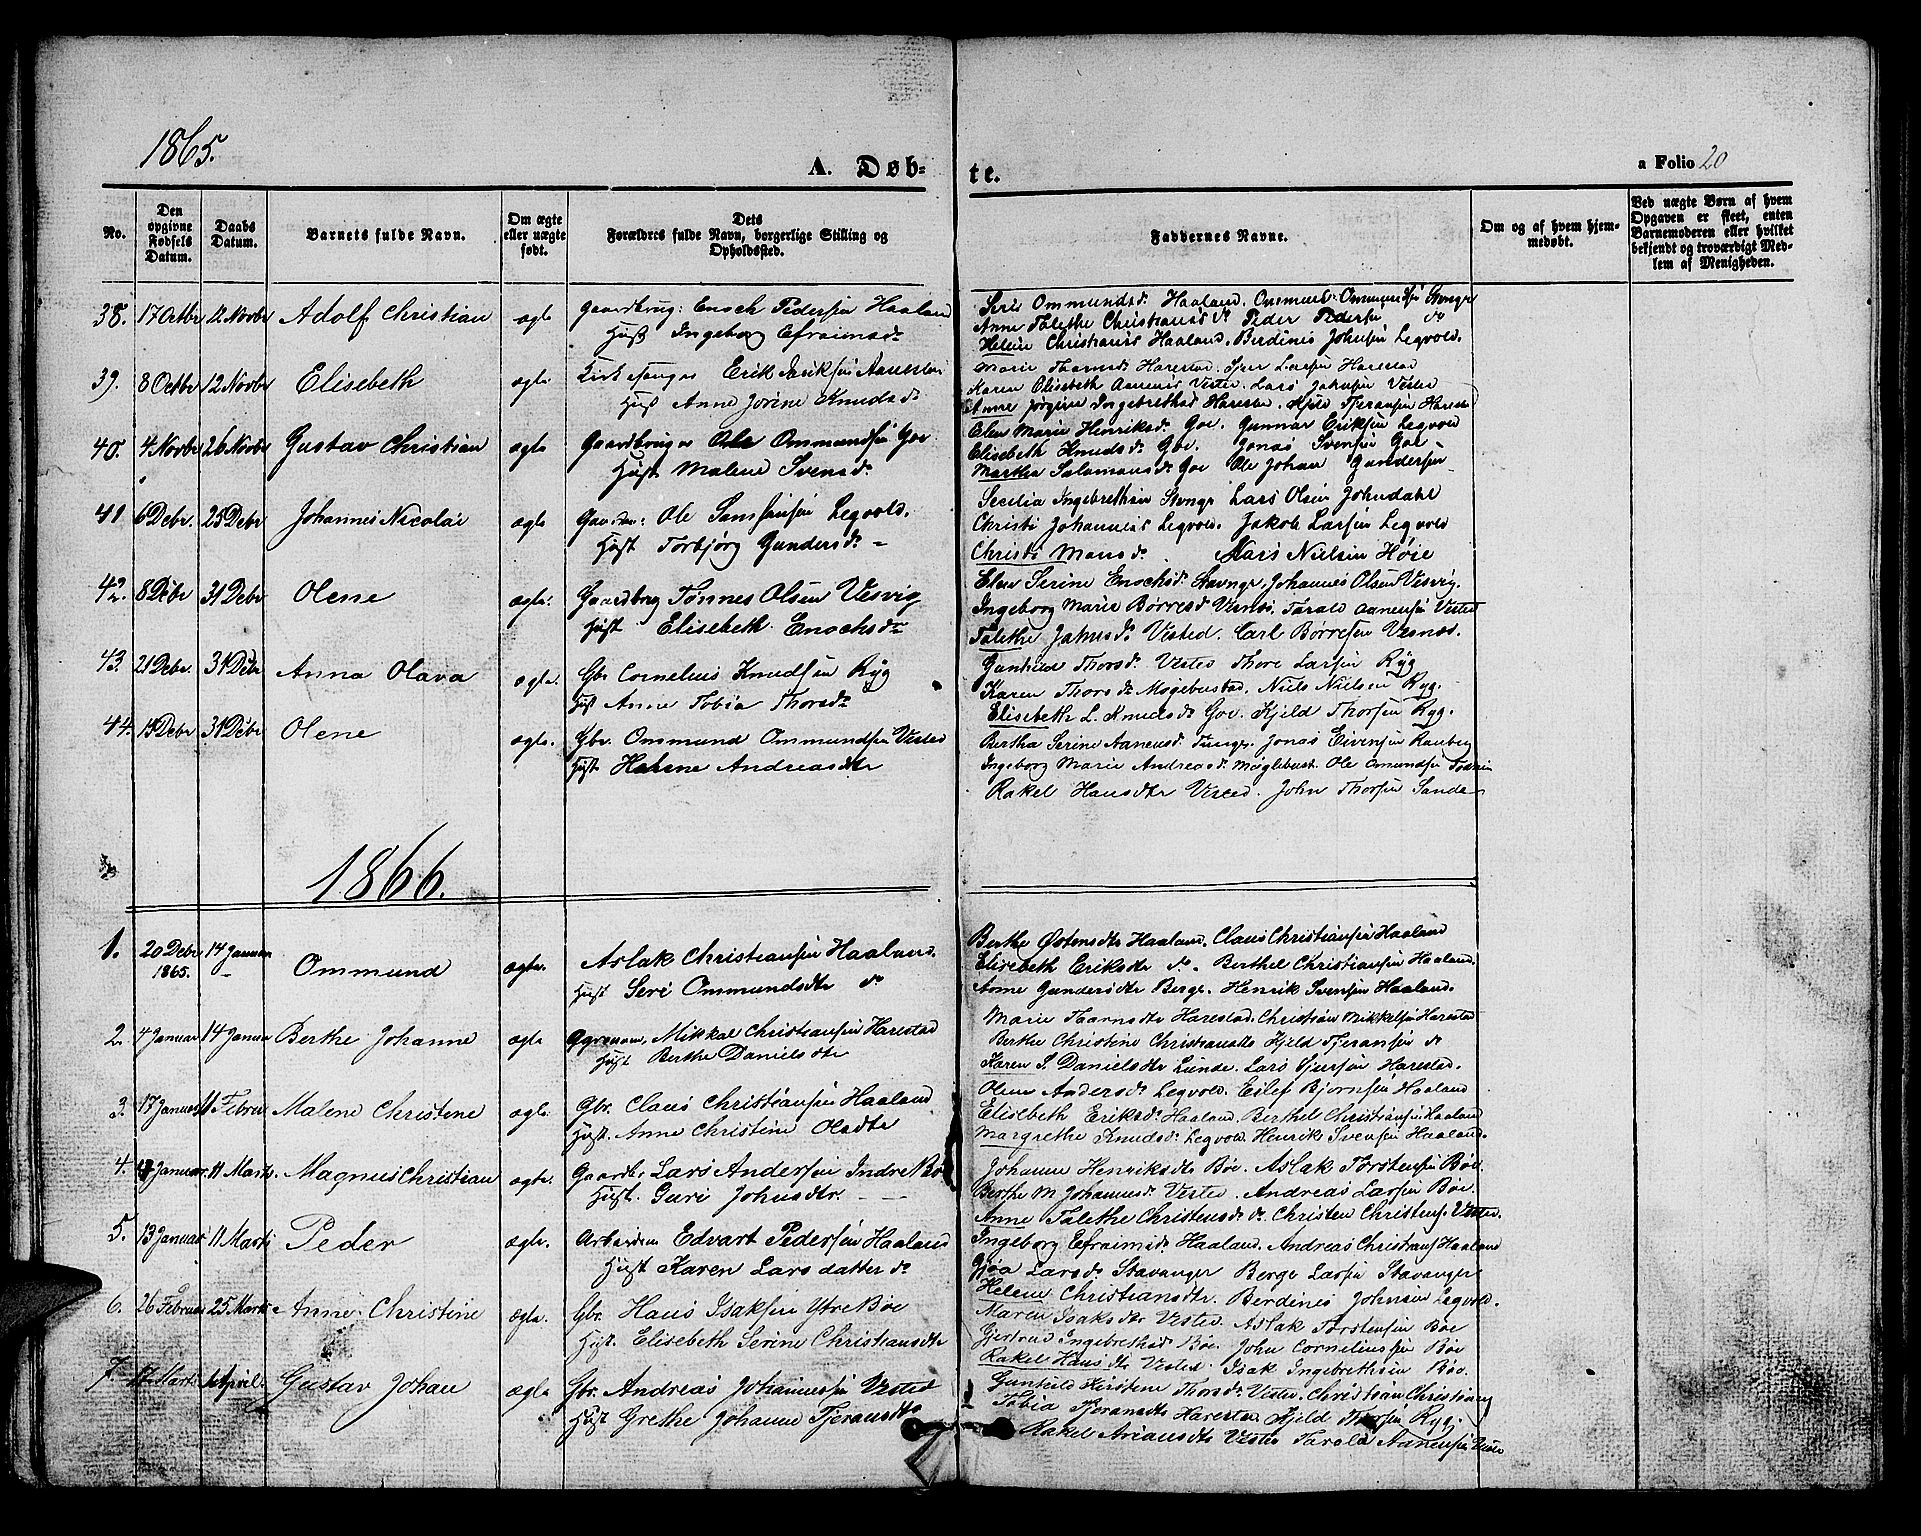 1865.
A. Døb-
te.
a Folio 20
No.
Den opgivne Fødsels Datum.
Daabs Datum.
Barnets fulde Navn.
Om ægte eller uægte født.
Dets Forældres fulde Navn, borgerlige Stilling og Opholdssted.
Faddernes Navne.
Om og af hvem hjemmedøbt.
Ved uægte Børn af hvem Opgaven er skeet, enten Barnemoderen eller hvilket bekjendt og troværdigt Medlem af Menigheden.
38. 17 Octbr 12 Novbr Adolf Christian ægte Gaardbrug: Enoch Pedersen Haaland
Hust Ingeborg Efraimsd.
Seri Ommundsd. Haaland. Ommund Ommundsen Stenge
Anne Talethe Christiansd do Peder Pedersen do
Helene Christians Haaland. Berdines Johnsen Legvold.
39. 8 Octbr 12 Novbr Elisebeth ægte Kirkesanger Erik Eriksen Aanensen
Hust Anne Jorine Knudsd
Marie Thomsd Harestad. Sjur Larsen Harestad
Karen Elisebeth Aanens Vested. Lars Johnsen Vested
Anne Jørgine Ingebrethsd Harestad. Kjeld Tjeransen Harestad
40. 4 Novbr 26 Novbr Gustav Christian ægte Gaardbruger Ole Ommundsen Goe
Hust Malene Svensd.
Elen Marie Henriksd. Goe. Gunnar Eriksen Legvold
Elisebeth Knudsd. Goe. Jonas Svensen Goe
Martha Salamonsd Goe Ole Johan Gundersen
41 6 Debr. 25 Debr Johannes Nicolai ægte Gaardbr: Ole Samsonsen Legvold.
Hust Torbjørg Gundersd.
Secilia Ingebrethsen Stenge Lars Olsen Johndahl
Christi Johannes Legvold. Jakob Larsen Legvold
Christi Monsd. Lars Nielsen Høie
42. 8 Debr 31 Debr Olene ægte: Gaardbrug Tønnes Olsen Vesvig
Hust Elisebeth Enochsdr
Elen Serine Enochsd. Stavnge. Johannes Olsen Vesvig.
Ingeborg Marie Børresd Vesnes. Tarald Aanensen Vested
Talethe Johnsd. Vested. Carl Børresen Vesnes.
43. 21 Debr. 31 Debr Anna Olava ægte. Gbr Cornelius Knudsen Ryg
Hust Anne Tobia Thorsdr
Gunhilde Thorsd. Vested Thore Larsen Ryg
Karen Thorsd. Møgebustad. Niels Nielsen Ryg.
Elisebeth L. Knudsd Goe. Kjeld Thorsen Ryg.
44. 15 Debr 31 Debr Olene ægte. Gbr. Ommund Ommundsen Vested
Hust Helene Andreasdtr
Bertha Serine Aanensd. Tunge. Jonas Eivensen Rauberg
Ingeborg Marie Andreasd. Møglebust. Ole Omundsen
Rakel Hansdtr Vested. John Thorsen Sande
1866.
1. 20 Debr 1865. 14 Januar Ommund ægte. Aslak Christiansen Haaland.
Hust Seri Ommundsdtr do
Berthe Østensdtr Haaland. Claus Christiansen Haaland
Elisebeth Eriksdtr do. Berthel Christiansen Haaland.
Anne Gundersdtr Berge. Henrik Svensen Haaland.
2. 4 Januar 14 Januar Berthe Johanne ægte Ggrmam, Mikkel Christiansen Harestad
Hust Berthe Danielsdtr
Marie Thomsdtr Harestad. Christian Mikkelsen Harestad
Berthe Christine Christiansdtr Kjeld Tjeransen do
Karen S. Danielsdtr Lunde. Lars Sjursen Harestad.
3. 17 Januar 11 Februar Malene Christene ægte. Gbr. Claus Christiansen Haaland
Hust. Anne Christine Olsdtr
Olene Andersd. Legvold. Eilef Bjørnsen Haaland
Elisebeth Eriksd. Haaland. Berthel Christiansen Haaland
Margrethe Knudsd. Legvold. Henrik Svensen Haaland.
4. 4 Januar. 11 Marts. Magnus Christian ægte. Gaardb. Lars Andersen Indre Bø
Hust. Guri Johnsdtr.
Johanne Henriksdtr Bøe. Aslak Torstensen Bøe.
Berthe M. Johannesd. Vested. Andreas Larsen Bøe
Anne Talethe Christensd. do. Christen Christens. Vested.
5. 13 Januar 11 Marts Peder ægte. Arbeidsm Edvart Pedersen Haaland
Hust Karen Larsdatter do
Ingeborg Efraimsd. Haaland. Andreas Christians Haaland
Gjøa Larsd. Stavanger Berge Larsen Stavanger
Helene Christiansdtr. Berdines Johnsen Legvold.
6. 26 Februar 25 Marts Anne Christine ægte. Gbr. Hans Isaksen Ytre Bøe
Hust. Elisebeth Serine Christiansdtr
Maren Isaksdtr Vested. Aslak Torstensen Bøe
Gjertrud Ingebrethsd Bøe. John Corneliusen Bøe
Rakel Hansdtr Vested. Isak Ingebrethsen Bøe.
7. 12 Marts 1 April Gustav Johan ægte Gbr. Andreas Johannessen Vested
Hust Grethe Johanne Tjeransdtr
Gunhild Kirstene Thorsd. Vested. Christian Christians
Tobia Tjeransdtr Harestad. Kjeld Thorsen Ryg.
Rakel Ariansdtr Vested Tarald Aanensen Vested